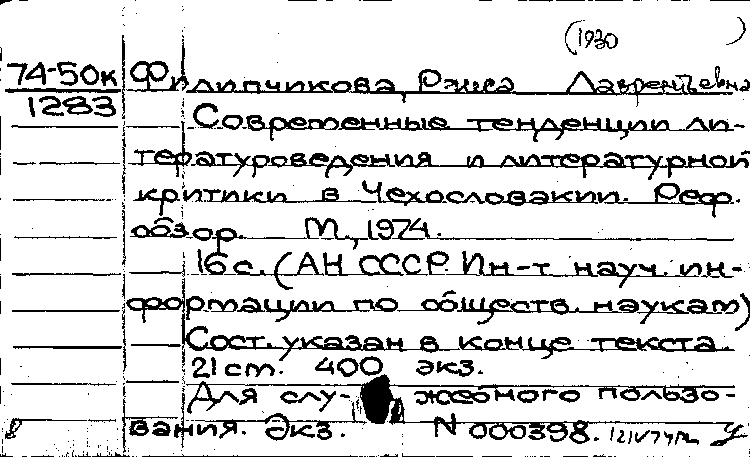 (1930 )
74-50к Филипчикова, Ржиса Лаврентьевна
1283 Современные тенденции ли-
тературоведения и литературной
критики в Чехословакии. Реф.
обзор. М., 1974.
16 с. (АН СССР. Ин-т науч. ин-
формации по обществ. наукам)
Сост. указан в конце текста.
21 cm. 400 экз.
Для слу- жебного пользо-
вания. Экз. N 000398.